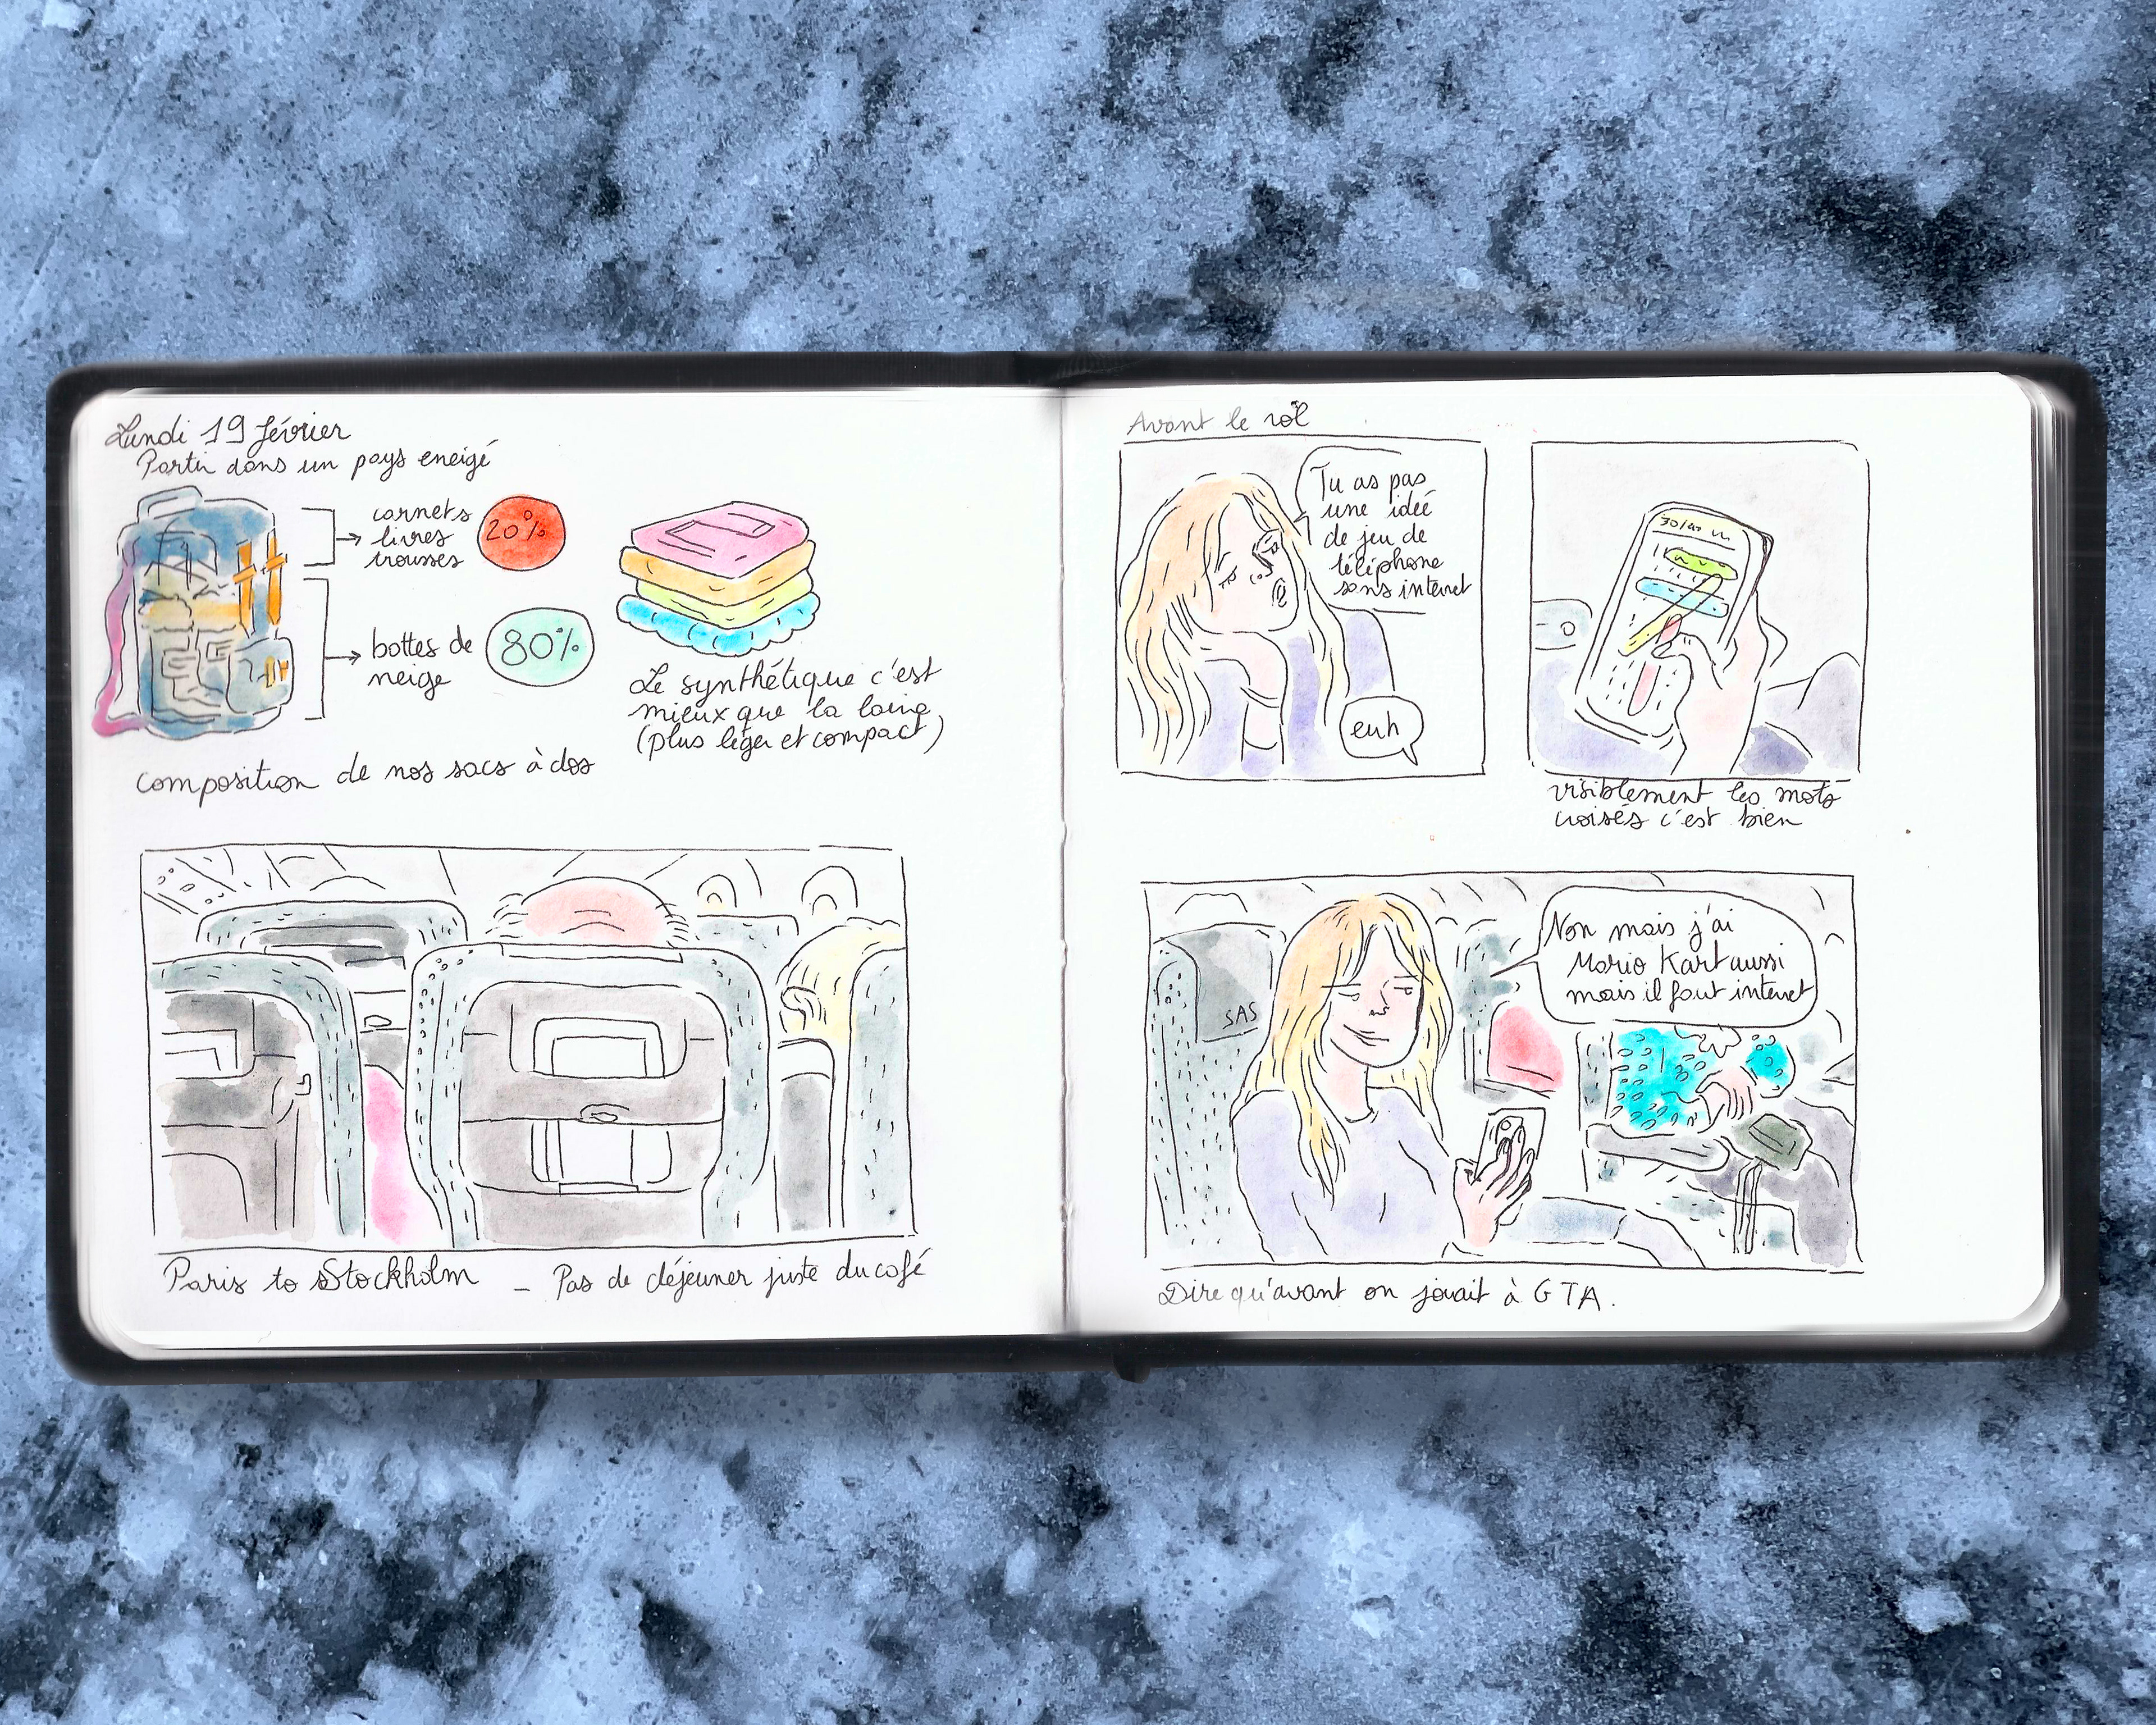 Lundi 19 février
Partir dans un pays eneigé
carnets
livres
trousses
20%
bottes de
neige
80%
Le synthétique c'est
mieux que la laine
(plus léger et compact)
composition de nos sacs à dos
Paris to Stockholm - Pas de déjeuner juste du café
Avant le vol
Tu as pas
une idée
de jeu de
téléphone
sans internet
euh
visiblement les mots
croisés c'est bien
SAS
Non mais j'ai
Mario Kart aussi
mais il faut internet
Dire qu'avant on jouait à GTA.